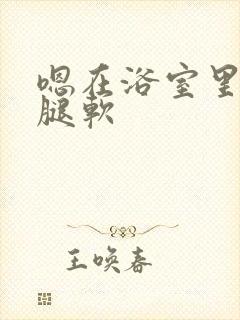 嗯在浴室里
腿軟
王喚春